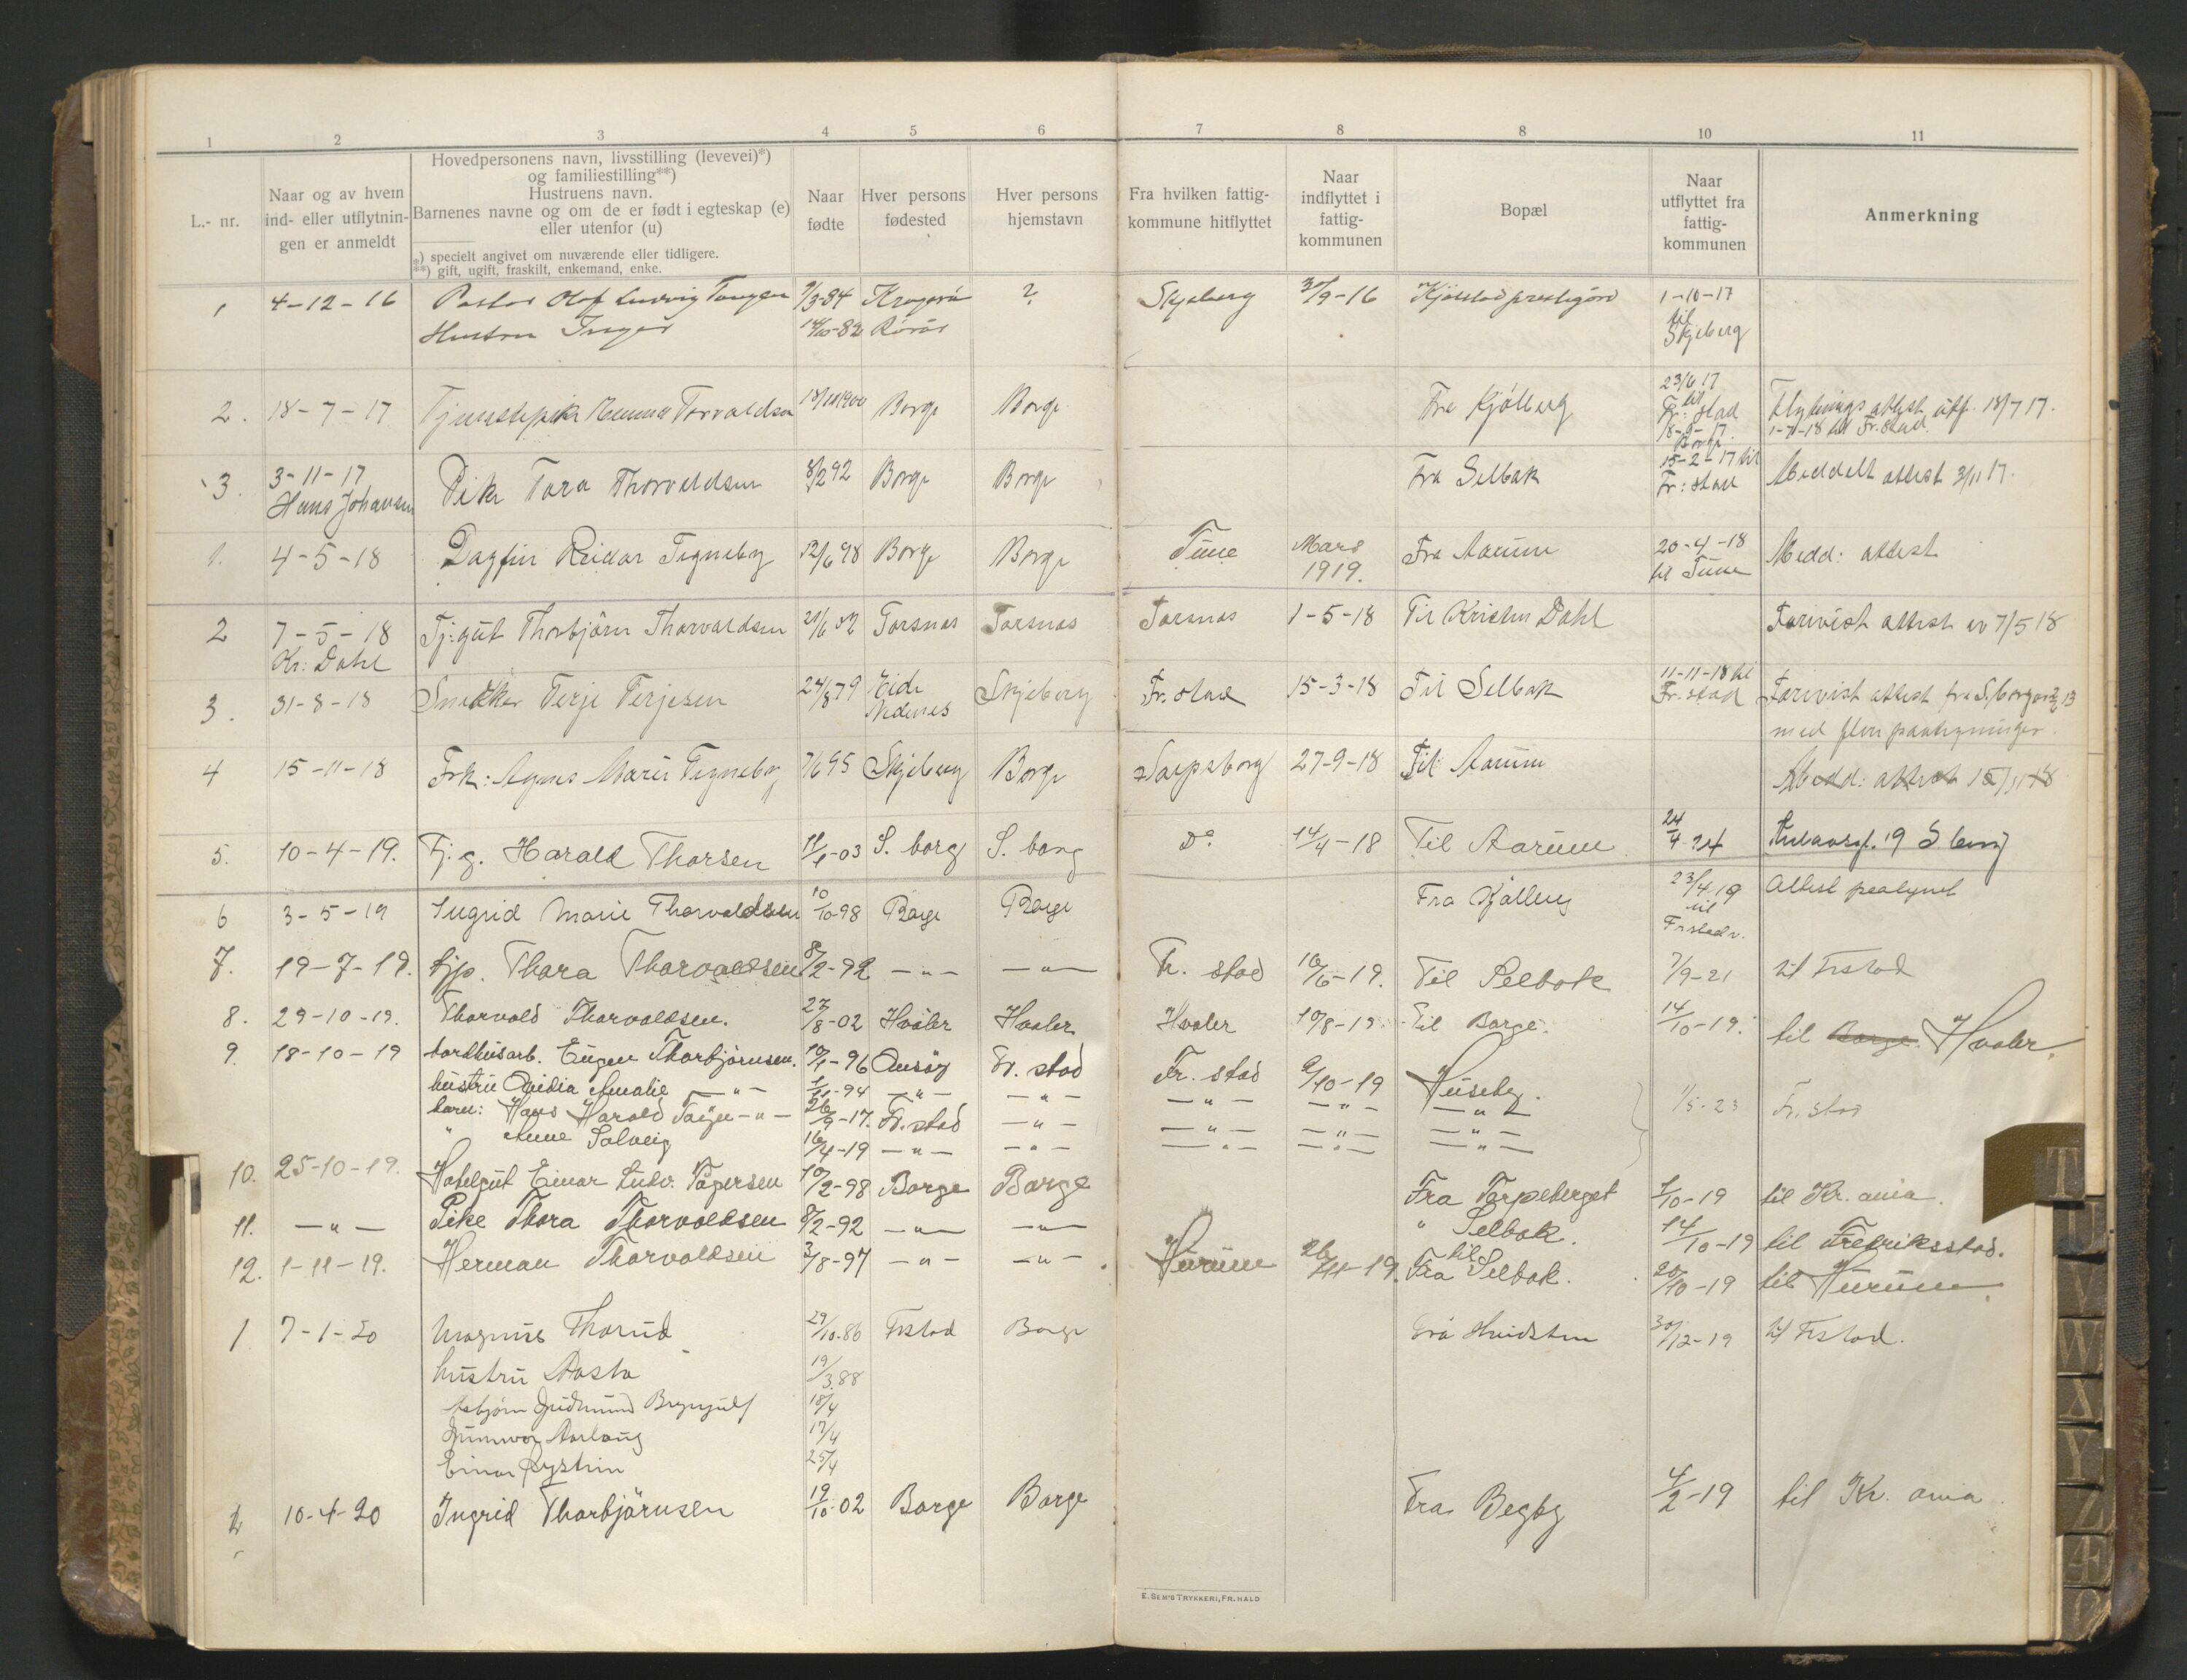 1 2 3 4 5 6 7 8 8 10 11
L.- nr.
Naar og av hvem
ind- eller utflytnin-
gen er anmeldt
Hovedpersonens navn, livsstilling (levevei)*)
og familiestilling**)
Hustruens navn.
Barnenes navne og om de er født i egteskap (e)
eller utenfor (u)
*) specielt angivet om nuværende eller tidligere.
**) gift, ugift, fraskilt, enkemand, enke.
Naar
fødte
Hver persons
fødested
Hver persons
hjemstavn
Fra hvilken fattig-
kommune hitflyttet
Naar
indflyttet i
fattig-
kommunen
Bopæl
Naar
utflyttet fra
fattig-
kommunen
Anmerkning
1 4-12-16 Pastor Olaf Ludvig Tangen 9/3-84 Kragerø ? Skjeberg 3/9-16 Kjølstad prestegård 1-10-17
Hustru Inger 14/10-82 Rørås til
Skjeberg
2. 18-7-17 Tjenstepike Emma Torvaldsen 18/10 1900 Borge Borge Fra Kjölberg 23/6 17 til Fr:stad Flytnings attest utf. 18/7 17.
18-9-17. Borge 1-7-18 til Fr.stad
3. 3-11-17 Pike Tora Thorvaldsen 8/2 92 Borge Borge Fra Selbak 15-2-17 til Meddelt attest 3/11 17.
Hans Johansen Fr:stad
1. 4-5-18 Dagfin Reidar Tegneby 12/6 98 Borge Borge Tune Mars Fra Aarum 20-4-18 Medd: attest
1919. til Tune
2 7-5-18 Tj:gut Thorbjörn Thorvaldsen 21/6 02 Torsnes Torsnes Torsnes 1-5-18 Til Kristen Dahl Forevist attest av 7/5 18
Kr: Dahl
3. 31-8-18 Snekker Terje Terjesen 24/8 79 Eide Skjeberg Fr.stad 15-3-18 Til Selbak 11-11-18 til Forevist attest fra S.borg
Nedenes Fr.stad
med flere paategninger.
4 15-11-18 Frk: Agnes Marie Tegneby 7/6 95 Skjeberg Borge Sarpsborg 27-9-18 Til Aarum Medd: attest 15/11 18
5. 10-4-19. Tj.g. Harald Thorsen 11/1-03 S.borg S.borg Do 14/4-18 Til Aarum 24/4 24 19 S.borg
6 3-5-19 Ingrid Marie Thorvaldsen 10/10-98 Borge Borge Fra Kjölberg 23/4-19 Attest paategnet
til
Frstad
7. 19-7-19. tjp. Thora Thorvaldsen 8/2-92 —"— —"— Fr. stad 16/6-19. Til Selbak 7/9-21 til Frstad
8. 29-10-19. Thorvald Thorvaldsen. 27/8-02 Hvaler Hvaler Hvaler 10/8-19 Til Borge. 14/10-19. til Borge. Hvaler.
9. 18-10-19 tordhusarb. Eugen Thorbjörnsen. 10/1-96 Onsöy Fr. stad Fr. stad 9/10-19 Huseby.
hustru Ovidia Amalie —"— 1/11-94 —"— —"— —"— —"— —"— 1/5-23 Fr.stad
barn: Hans Harald Tage —"— 26/9-17. Fr.stad —"— —"— —"— —"—
" Anne Solveig 16/4-19 —"— —"— —"— —"— —"—
10. 25-10-19. Hotelgut Einar Ludv. Tögersen 10/2-98 Borge Borge Fra Torpeberget 1/10-19 til Kr. ania.
11. —"— Pike Thora Thorvaldsen 8/2-92 —"— —"— " Selbak. 14/10-19 til Fredriksstad.
12. 1-11-19. Herman Thorvaldsen 3/8-97 —"— —"— Hurum 26/11-19. Fra til Selbak. 20/10-19 til Hurum.
1 7-1-20 Magnus Thorud 29/10-86 Frstad Borge Fra Hvidsten 30/12-19 til Frstad.
hustru Aasta 19/3.88
Asbjørn Gudmund Brynjulf 18/4
Gunnvor Aaslaug 17/4
Einar Øystein 25/4
2 10-4-20 Ingrid Thorbjörnsen 19/10-02 Borge Borge Fra Begby 4/2-19 til Kr. ania.
E. SEM'S TRYKKERI, FR.HALD
T
U
V
W
X
Y
Z
Æ
Ø